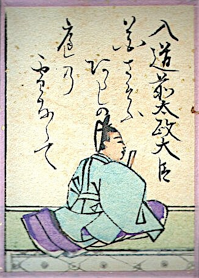 入道前太政大臣
花さそふ
あらしの
庭の
雪ならて